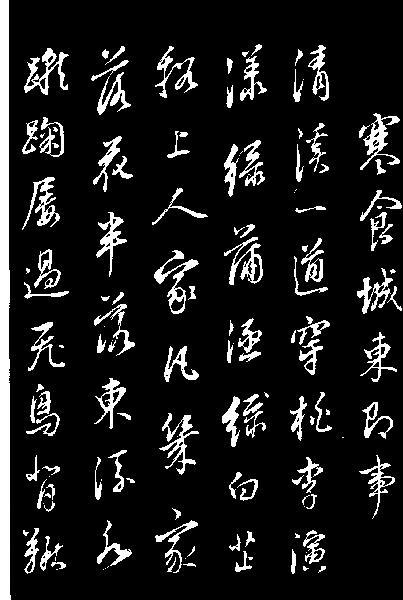 寒食城東即事
清溪一道穿桃李演
漾綠蒲涵綠白芷
谿上人家凡幾家
落花半落東流水
蹴踘屢過飛鳥背鞦